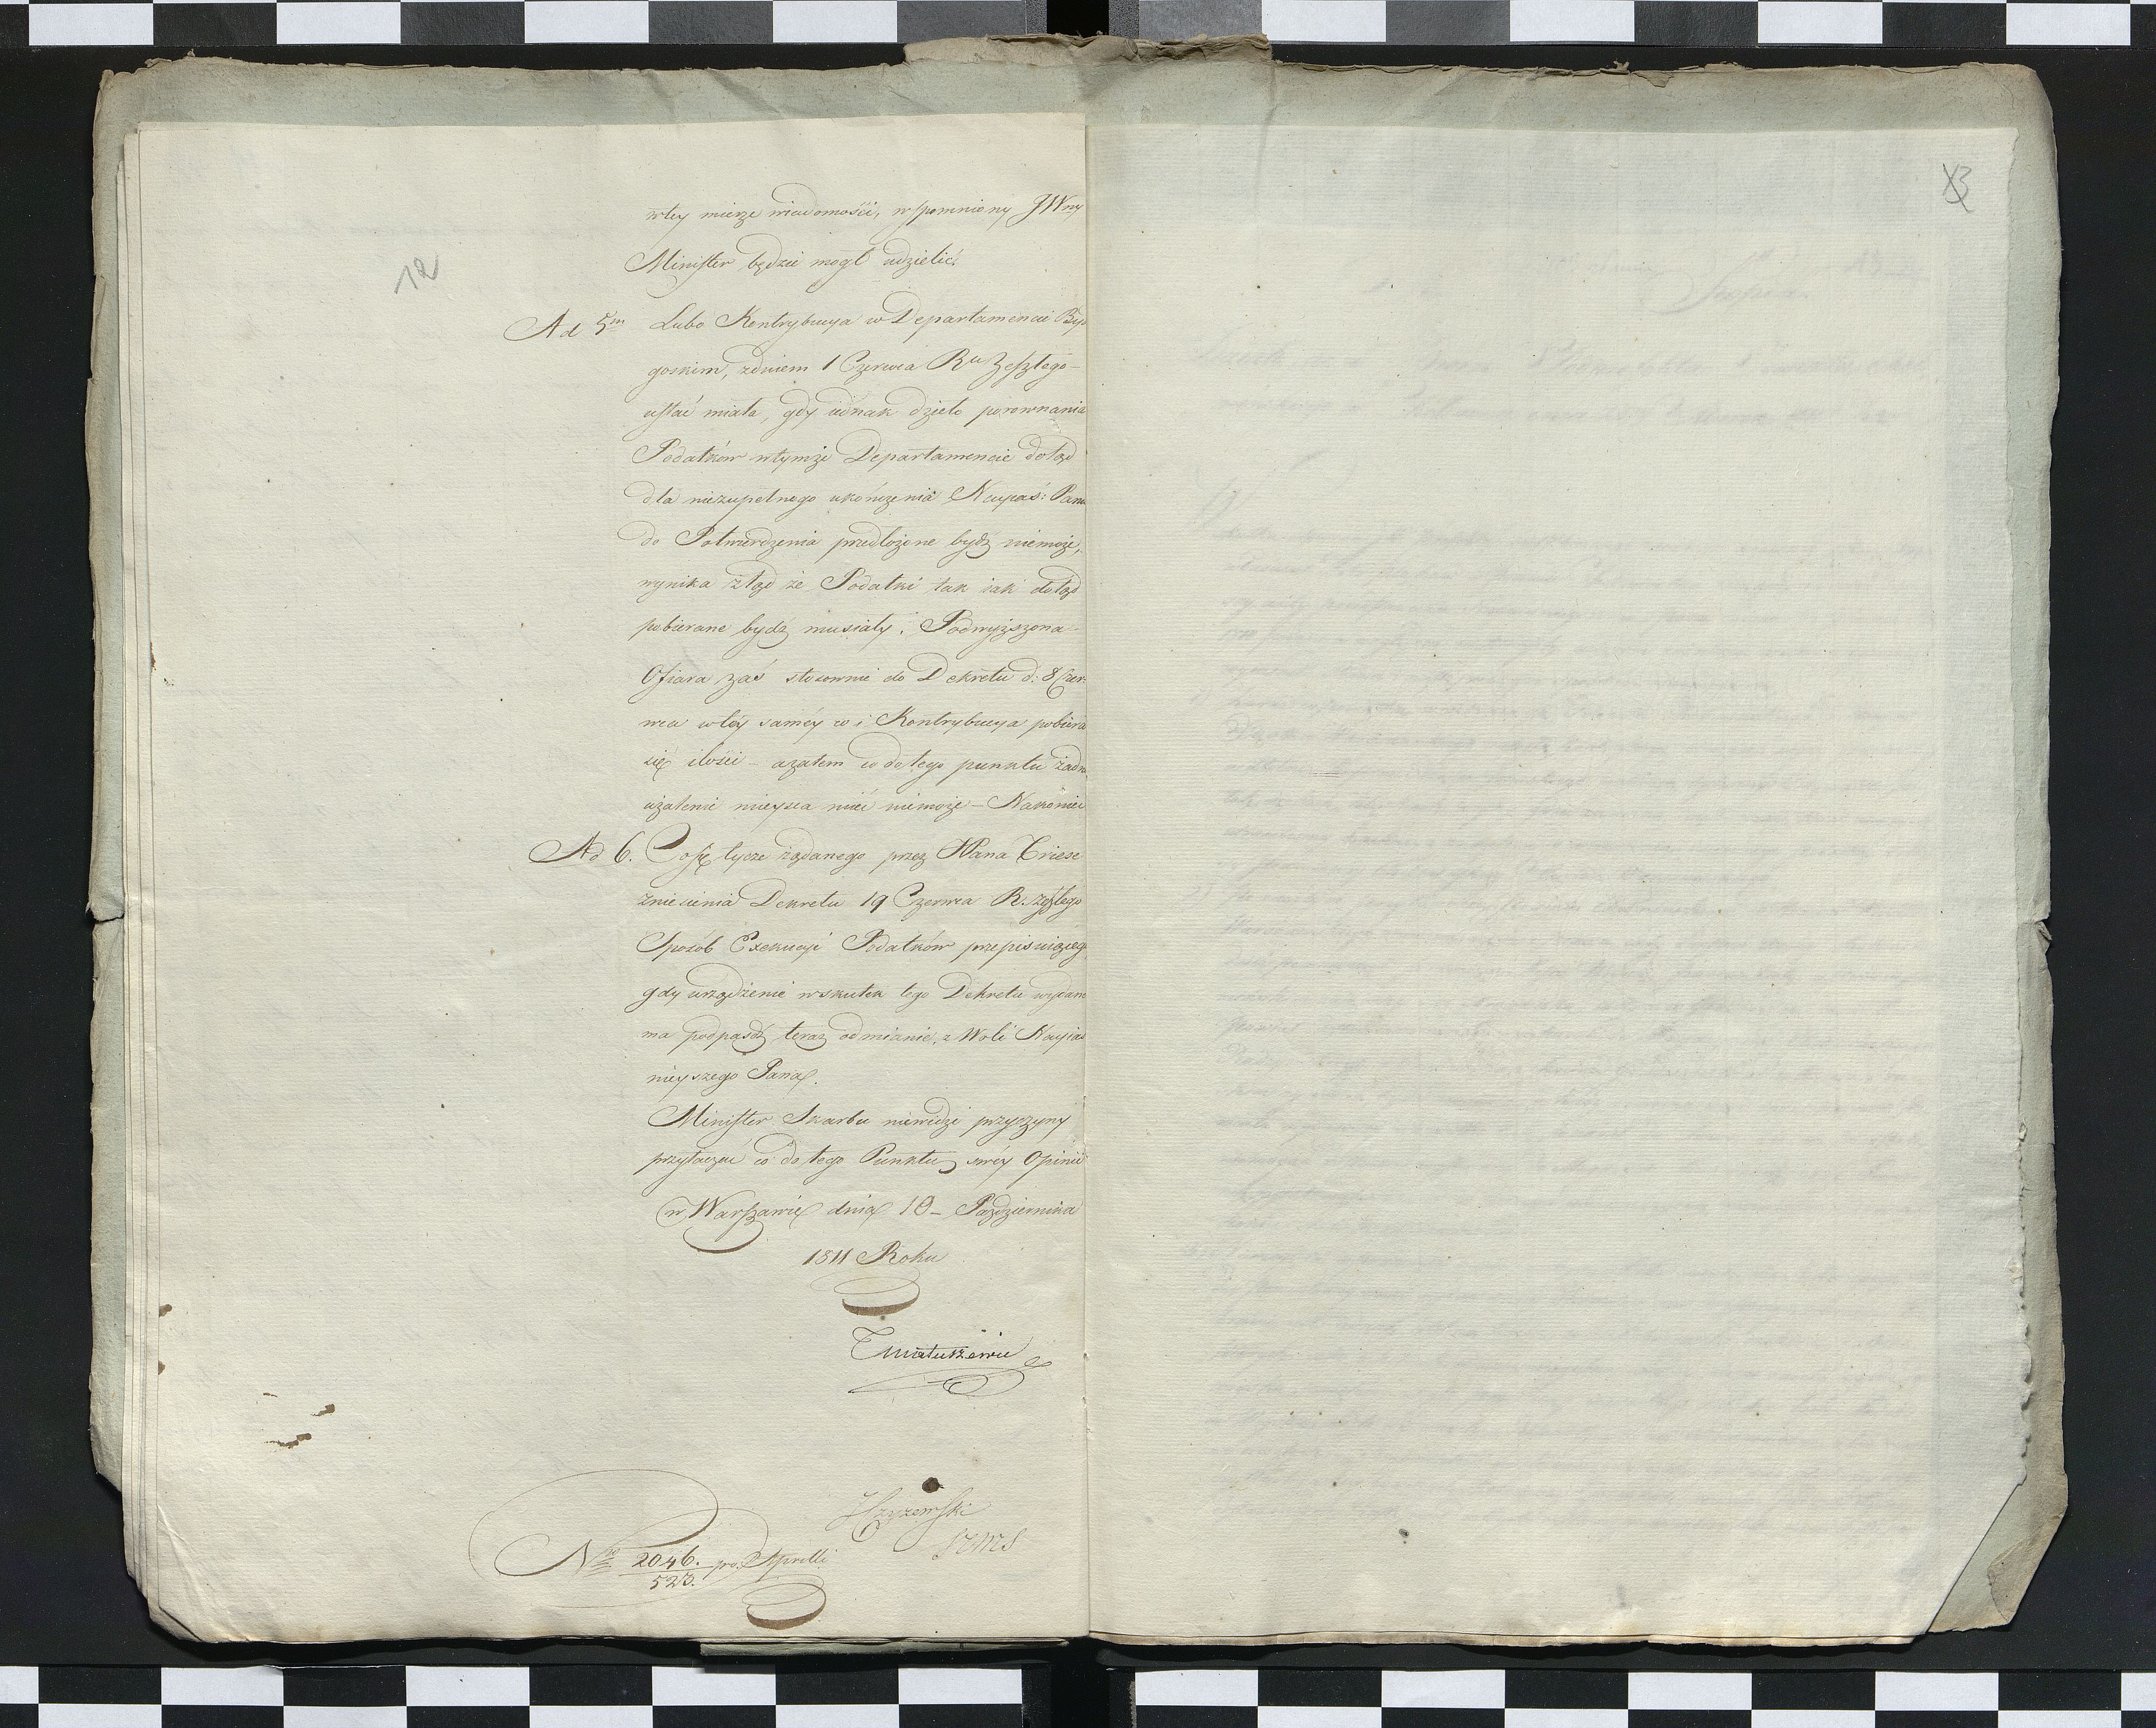 12
wtey mierze wiadomości, wspomniony JWny
Minister będzie mogł udzielić.
Ad 5m Lubo Kontrybucya w Departamencie Byd
goskim, zdniem 1 Czerwca Ru Zeszłego
ustać miała, gdy iednak dzieło porownania
Podatków wtymże Departamencie dotąd
dla niezupełnego ukończenia Nayjaś: Panu
do Potwierdzenia przedłożone bydź niemoże,
wynika ztąd że Podatki tak iak dotąd
pobierane bydź musiały. Podwyższona
Ofiara zaś stosownie do Dekretu d: 8 Czer-
wca wtéy saméy co i Kontrybucya pobiera
się ilości – azatem co do tego punktu żadne
użalenie mieysca mieć niemoże – Nakoniec
Ad 6. Co się tycze żądanego przez JPana Triese
zniesienia Dekretu 19 Czerwca R. zeszłego
Sposób Exekucyi Podatków przepisuiącego
gdy urządzenie wskutek tego Dekretu wydane
ma podpaść teraz odmianie, z Woli Nayias
nieyszego Pana.
Minister Skarbu niewidzi przyczyny
przytaczać co do tego Punktu swéy Opinii
w Warszawie dnia 10 – Października
1811 Roku
TMatuszewic
No 2046./523. pro Aprilli
13